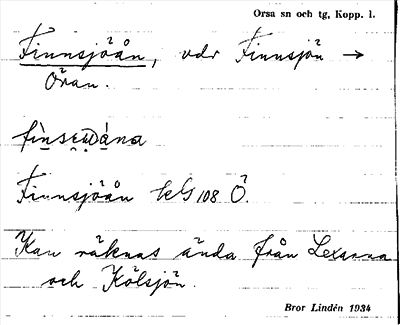 Orsa sn och tg, Kopp. l.
Finnsjöån, vdr Finnsjön →
Öran.
Finnsjöån kfs 108 Ö.
Kan räknas ända från Lexarna
och Kölsjön.
Bror Lindén 1934